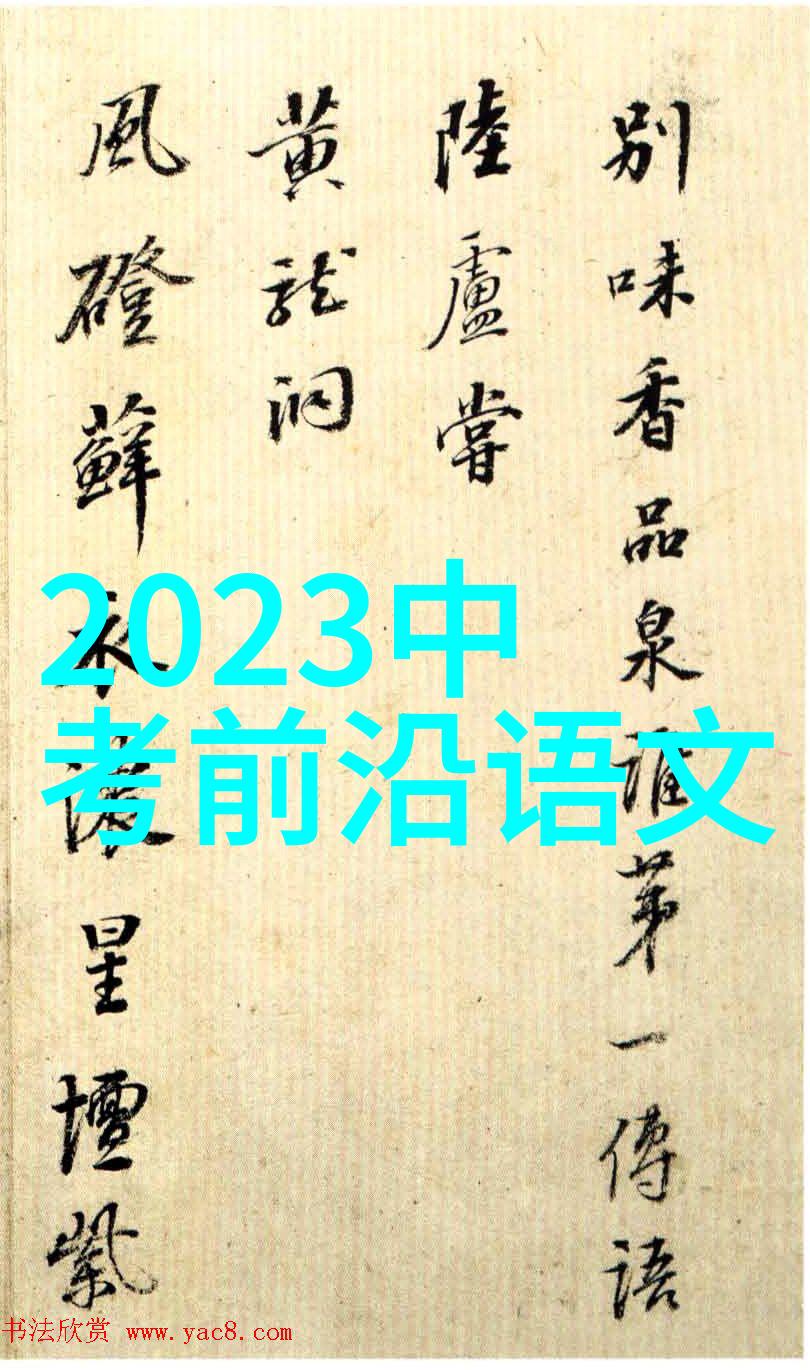 别味香品泉谁第一傳語
陸盧嘗
黄龍洞
風磴蘚衣滋星壇紫
2023中
考前沿语文
书法欣赏 www.yac8.com